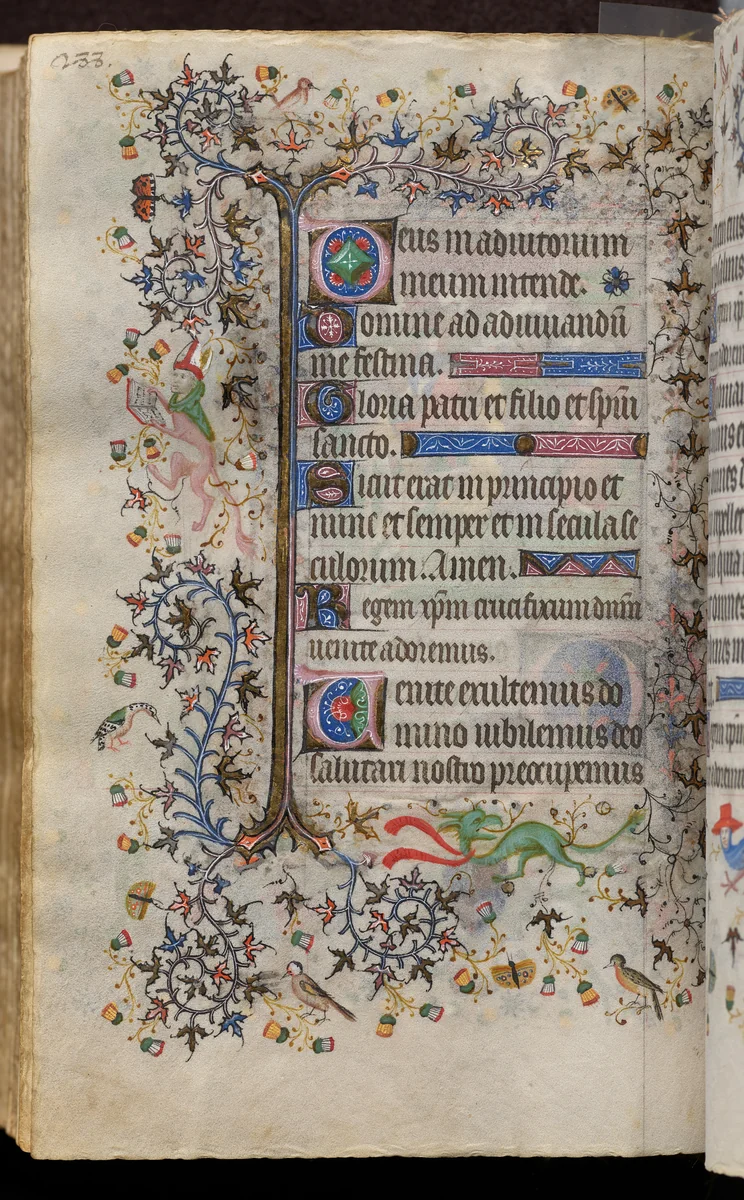 233.
Deus in adiutorium
meum intende.
Domine ad adiuuandū
me festina.
Gloria patri et filio et spūi
sancto.
Sicut erat in principio et
nunc et semper et in secula se
culorum. Amen.
Regem xp̄m crucifixum dn̄m
uenite adoremus.
Uenite exultemus do
mino iubilemus deo
salutari nostro preocupemus